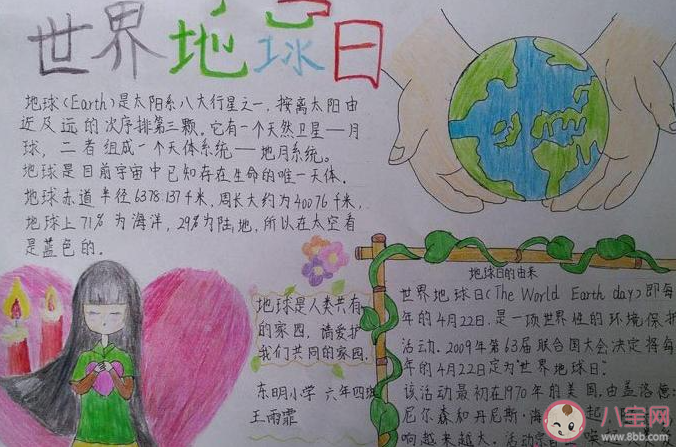 世界地球日
地球(Earth)是太阳系八大行星之一，按离太阳由
近及远的次序排第三颗。它有一个天然卫星——月
球，二者组成一个天体系统——地月系统。
地球是目前宇宙中已知存在生命的唯一天体.
地球赤道半径6378.137千米，周长大约为40076千米，
地球上71%为海洋，29%为陆地，所以在太空看
是蓝色的.
地球是人类共有
的家园.请爱护
我们共同的家园.
东明小学 六年四班
王雨霏
地球日的由来
世界地球日(The World Earth day)即每
年的4月22日.是一项世界性的环境保护
活动.2009年第63届联合国大会决定将每
年的4月22日定为"世界地球日".
该活动最初在1970年的美国.由盖洛德·
尼尔森和丹尼斯·海
起
响越来越大.活动
八宝网
www.8bb.com